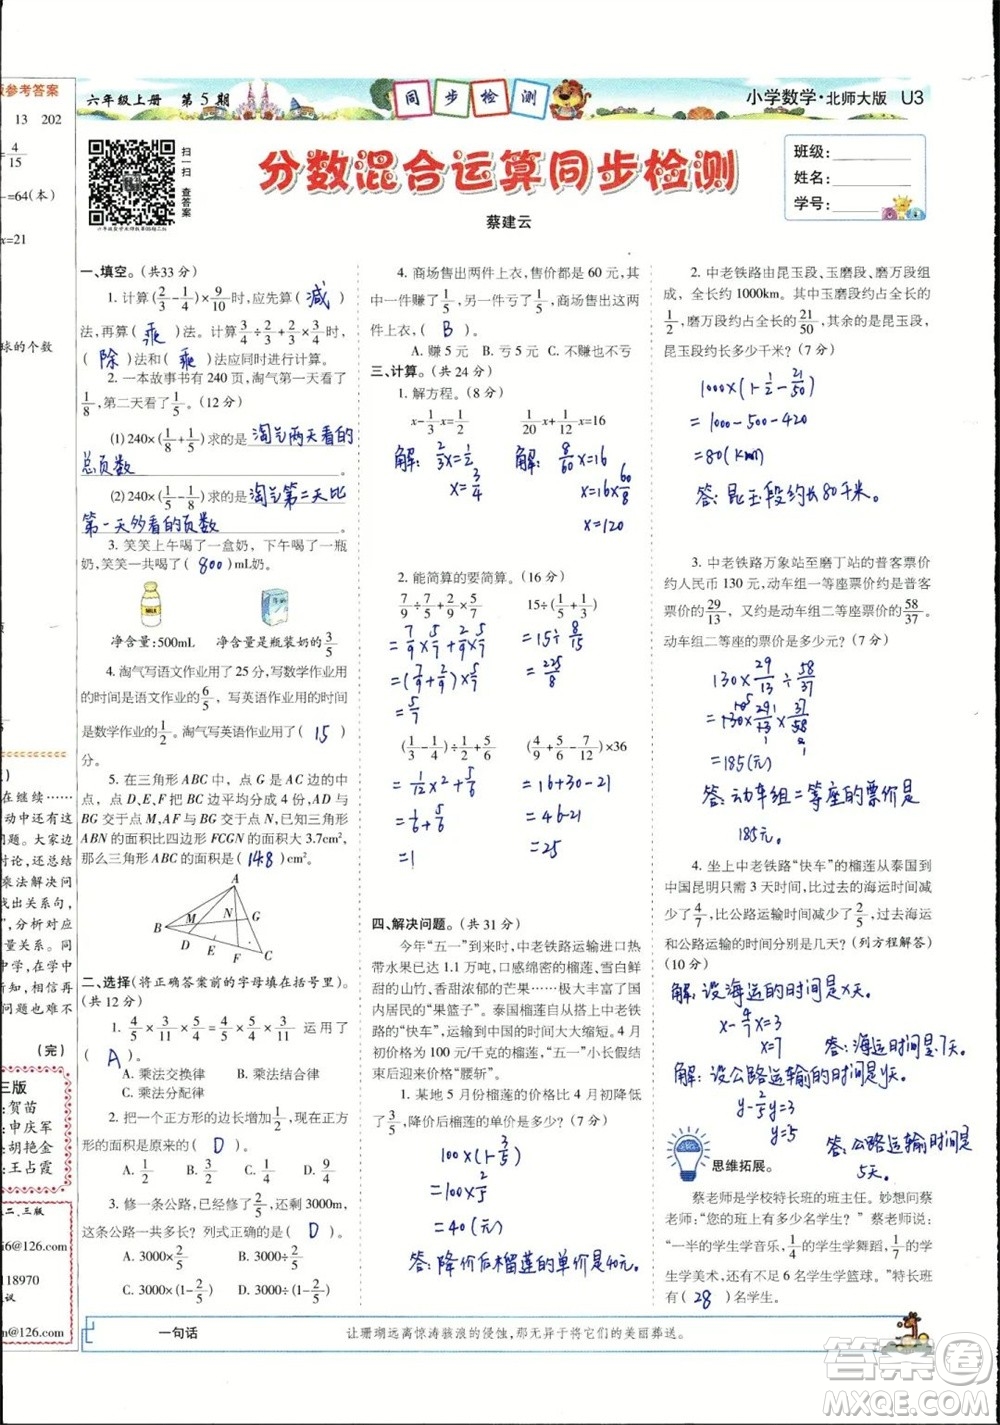 版参考答案
13 202
4/15
=64(本)
x=21
球的个数
在继续……
动中还有这
问题。大家边
讨论,还总结
乘法解决问
找出关系句,
”,分析对应
量关系。同
中,在学中
,相信再
也难不
(完)
三版
:贺苗
:申庆军
:胡艳金
:王占霞
二、三版
i6@126.com
118970
n@126.com
六年级上册 第5期
同步检测
小学数学·北师大版 U3
扫一扫 查答案
分数混合运算同步检测
蔡建云
班级:
姓名:
学号:
一、填空。(共33分)
1. 计算(2/3-1/4)×9/10时,应先算(减)
法,再算(乘)法。计算3/4÷2/3×1/4时,
(除)法和(乘)法应同时进行计算。
2. 一本故事书有240页,淘气第一天看了
1/8,第二天看了1/5。(12分)
(1)240×(1/8+1/5)求的是 淘气两天看的
总页数。
(2)240×(1/5-1/8)求的是 淘气第二天比
第一天多看的页数。
3. 笑笑上午喝了一盒奶,下午喝了一瓶
奶,笑笑一共喝了(800)mL奶。
MILK
净含量:500mL 净含量是瓶装奶的3/5
4. 淘气写语文作业用了25分,写数学作业用
的时间是语文作业的6/5,写英语作业用的时间是
数学作业的1/2。淘气写英语作业用了(15)
分。
5. 在三角形ABC中,点G是AC边的中
点,点D、E、F把BC边平均分成4份,AD与
BG交于点M,AF与BG交于点N,已知三角形
ABN的面积比四边形FCGN的面积大3.7cm²,
那么三角形ABC的面积是(14.8)cm²。
A
M N G
B
D E F C
二、选择(将正确答案前的字母填在括号里)。
(共12分)
1. 4/5×3/11×5/4=4/5×5/4×3/11运用了
(A)。
A. 乘法交换律 B. 乘法结合律
C. 乘法分配律
2. 把一个正方形的边长增加1/2,现在正方
形的面积是原来的(D)。
A. 1/2 B. 1/4 C. 3/4 D. 9/4
3. 修一条公路,已经修了2/5,还剩3000m,
这条公路一共多长?列式正确的是(D)。
A. 3000×2/5 B. 3000÷2/5
C. 3000×(1-2/5) D. 3000÷(1-2/5)
4. 商场售出两件上衣,售价都是60元,其
中一件赚了1/5,另一件亏了1/5,商场售出这两
件上衣,(B)。
A. 赚5元 B. 亏5元 C. 不赚也不亏
三、计算。(共24分)
1. 解方程。(8分)
x-1/3x=1/2 1/20x+1/12x=16
解:2/3x=1/2 解:8/60x=16
x=3/4 x=16×60/8
x=120
2. 能简算的要简算。(16分)
7/9÷7/5+2/9×5/7 15÷(1/5+1/3)
=7/9×5/7+2/9×5/7 =15÷8/15
=(7/9+2/9)×5/7 =225/8
=5/7
(1/3-1/4)÷1/2+5/6 (4/9+5/6-7/12)×36
=1/12×2+5/6 =16+30-21
=1/6+5/6 =46-21
=1 =25
四、解决问题。(共31分)
今年“五一”到来时,中老铁路运输进口热
带水果已超过1.1万吨,口感绵密的榴莲、雪白鲜
甜的山竹、香甜浓郁的芒果……极大丰富了国
内居民的“果篮子”。泰国榴莲自从搭上中老铁
路的“快车”,运输到中国的时间大大缩短。4月
均价为100元/千克的榴莲,“五一”小长假结束
后直接来了个价格“腰斩”。
1. 某地5月份榴莲的价格比4月初降低
了3/5,降价后榴莲的单价是多少?(7分)
100×(1-3/5)
=100×2/5
=40(元)
答:降价后榴莲的单价是40元。
2. 中老铁路由昆玉段、玉磨段、磨万段组
成,全长约1000km。其中,玉磨段约占全长的
1/2,磨万段约占全长的21/50,其余的是昆玉段,
昆玉段约长多少千米?(7分)
1000×(1-1/2-21/50)
=1000-500-420
=80(km)
答:昆玉段约长80千米。
3. 中老铁路万象站至磨丁站的普客票价
约人民币130元,动车组一等座票价约是普客
票价的29/13,又约是动车组二等座票价的58/37,
动车组二等座的票价是多少元?(7分)
130×29/13÷58/37
=130×29/13×37/58
=185(元)
答:动车组二等座的票价是
185元。
4. 坐上中老铁路“快车”的榴莲从泰国到
中国昆明只需3天时间,比过去的海运时间少
了4/7,比公路运输的时间少了2/5,过去海运
和公路运输的时间分别是几天?(列方程解答)
(10分)
解:设海运的时间是x天。
x-4/7x=3
x=7 答:海运时间是7天。
解:设公路运输的时间是y天。
y-2/5y=3
y=5 答:公路运输时间是
5天。
思维拓展。
蔡老师是学校特长班的班主任。妙想问蔡
老师:“您的班上有多少名学生?”蔡老师说:
“一半的学生学音乐,1/4的学生学舞蹈,1/7的学
生学美术,还有不足6名学生学篮球。”特长班
有(28)名学生。
一句话 让珊瑚远离惊涛骇浪的侵蚀,那无异于将它们的美丽葬送。
答案卷
MXQE.COM